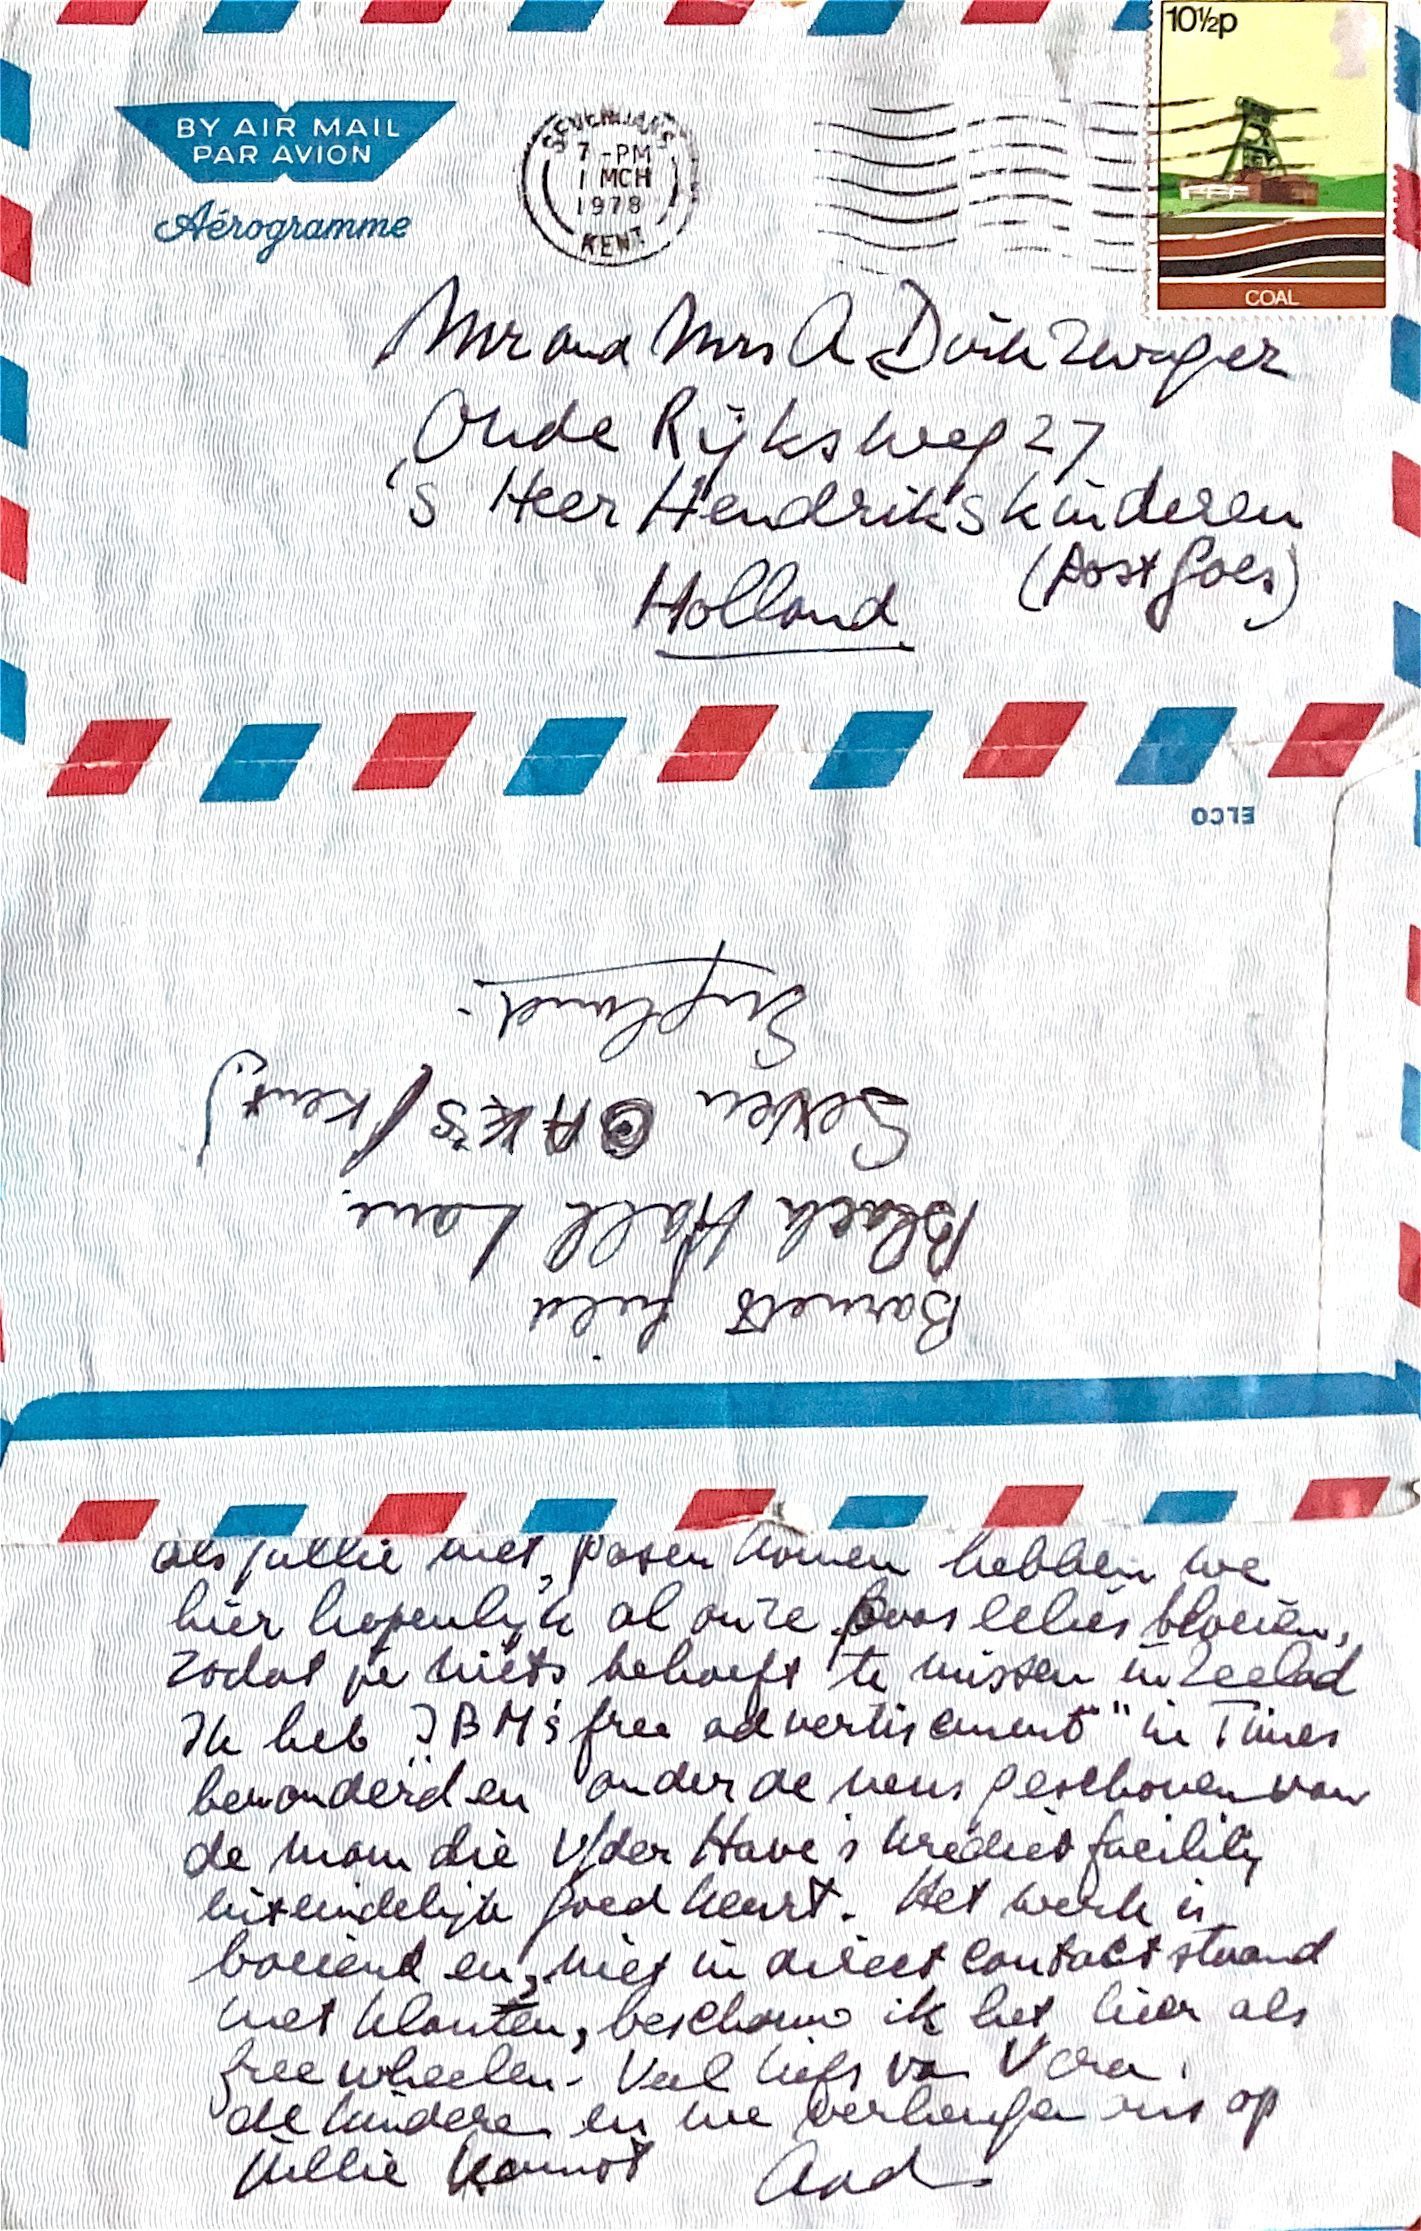 10½p
BY AIR MAIL
PAR AVION
Aérogramme
SEVENOAKS
7 - PM
1 MCH
1978
KENT
COAL
Mr and Mrs A Dirkzwager
Oude Rijksweg 27
's Heer Hendrikskinderen
(Post Goes)
Holland
ELCO
Barnett field
Black Hall Lane.
Seven OAKS (Kent)
England.
Als jullie met Pasen komen hebben we
hier hopenlijk al onze leliës bloeien,
zodat je niets behoeft te missen in Zeelad
Ik heb IBM's free advertisement" in Times
bewonderd en onder de neus geschoven van
de man die V/der Have's krediet facility
uiteindelijk goed keurt. Het werk is
boeiend en, niet in direct contact staand
met klanten, beschouw ik het hier als
free wheelen. Veel liefs van Vera,
de kinderen en we verheugen ons op
jullie komst Aad